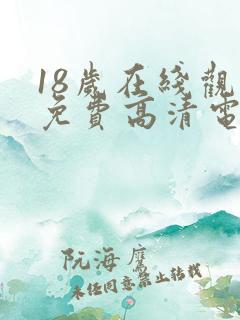 18歲在綫觀
免費高清電
阮海鷹
未经同意禁止转载